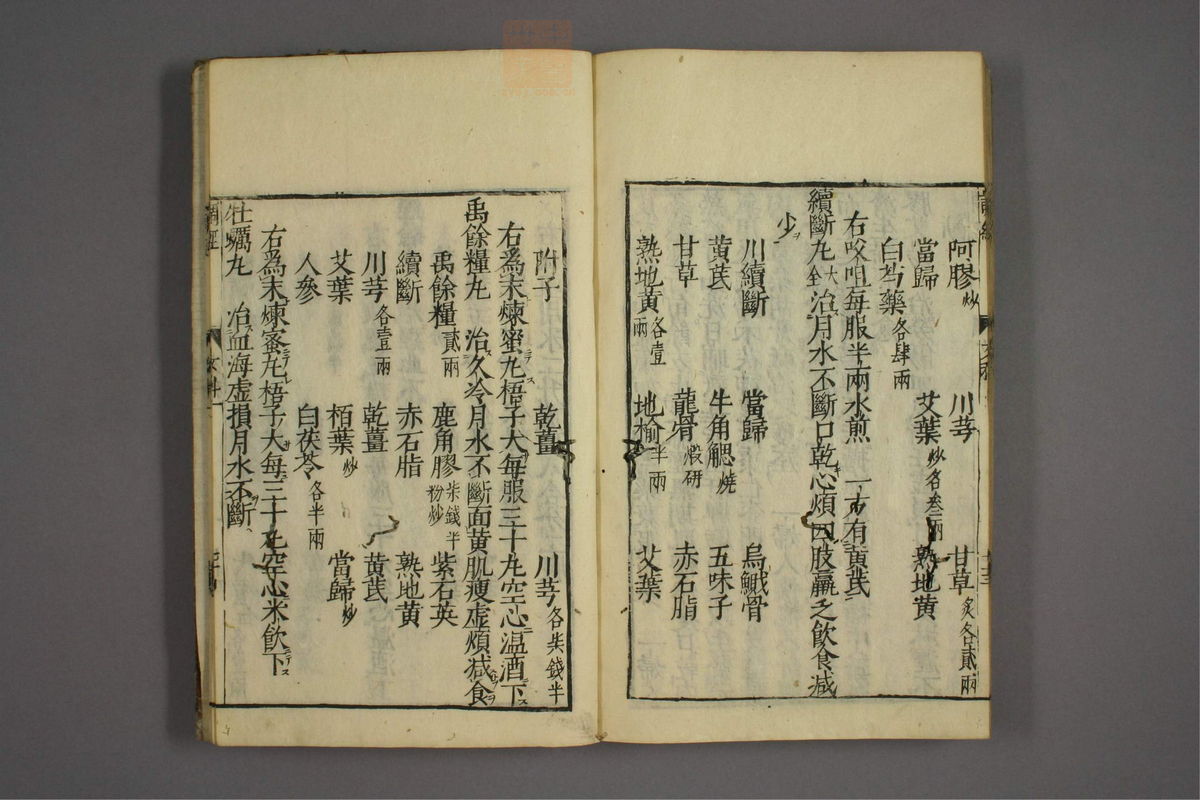 阿膠炒 川芎 甘草炙各貳兩
當歸 艾葉炒各叁兩 熟地黄
白芍藥各肆兩
右㕮咀每服半兩水煎 一方有黄芪
續斷丸大全 治月水不斷口乾心煩四肢羸乏飲食減
少
川續斷 當歸 烏鰂骨
黄芪 牛角䚡燒 五味子
甘草 龍骨煅研 赤石脂
熟地黄各壹兩 地榆半兩 艾葉
附子 乾薑 川芎各柒錢半
右為末煉蜜丸梧子大每服三十丸空心温酒下
禹餘糧丸 治久冷月水不斷面黄肌瘦虚煩減食
禹餘糧貳兩 鹿角膠柒錢半粉炒 紫石英
續斷 赤石脂 熟地黄
川芎各壹兩 乾薑 黄芪
艾葉 栢葉炒 當歸炒
人參 白茯苓各半兩
右為末煉蜜丸梧子大每三十丸空心米飲下
牡蠣丸 治血海虚損月水不斷